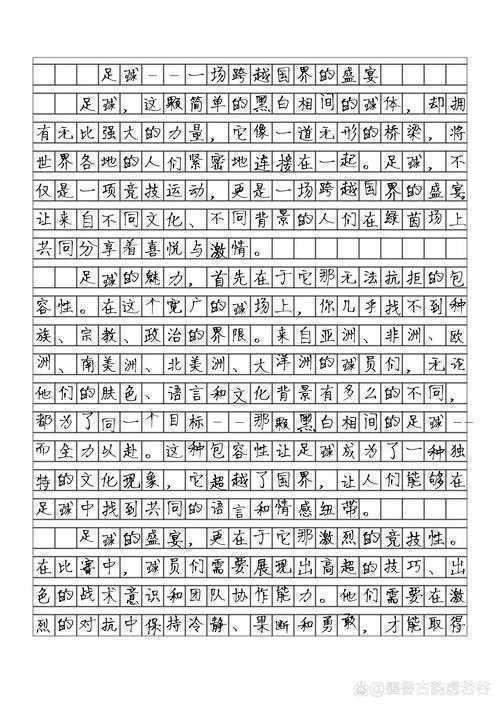 足球--一场跨越国界的盛宴
足球，这颗简单的黑白相间的球体，却拥
有无比强大的力量，它像一道无形的桥梁，将
世界各地的人们紧密地连接在一起。足球，不
仅是一项竞技运动，更是一场跨越国界的盛宴，
让来自不同文化、不同背景的人们在绿茵场上
共同分享着喜悦与激情。
足球的魅力，首先在于它那无法抗拒的包
容性。在这个宽广的球场上，你几乎找不到种
族、宗教、政治的界限。来自亚洲、非洲、欧
洲、南美洲、北美洲、大洋洲的球员们，无论
他们的肤色、语言和文化背景有多么的不同，
都为了同一个目标--那颗黑白相间的足球--
而全力以赴。这种包容性让足球成为了一种独
特的文化现象，它超越了国界，让人们能够在
足球中找到共同的语言和情感纽带。
足球的盛宴，更在于它那激烈的竞技性。
在比赛中，球员们需要展现出高超的技巧、出
色的战术意识和团队协作能力。他们需要在激
烈的对抗中保持冷静、果断和勇敢，才能取得